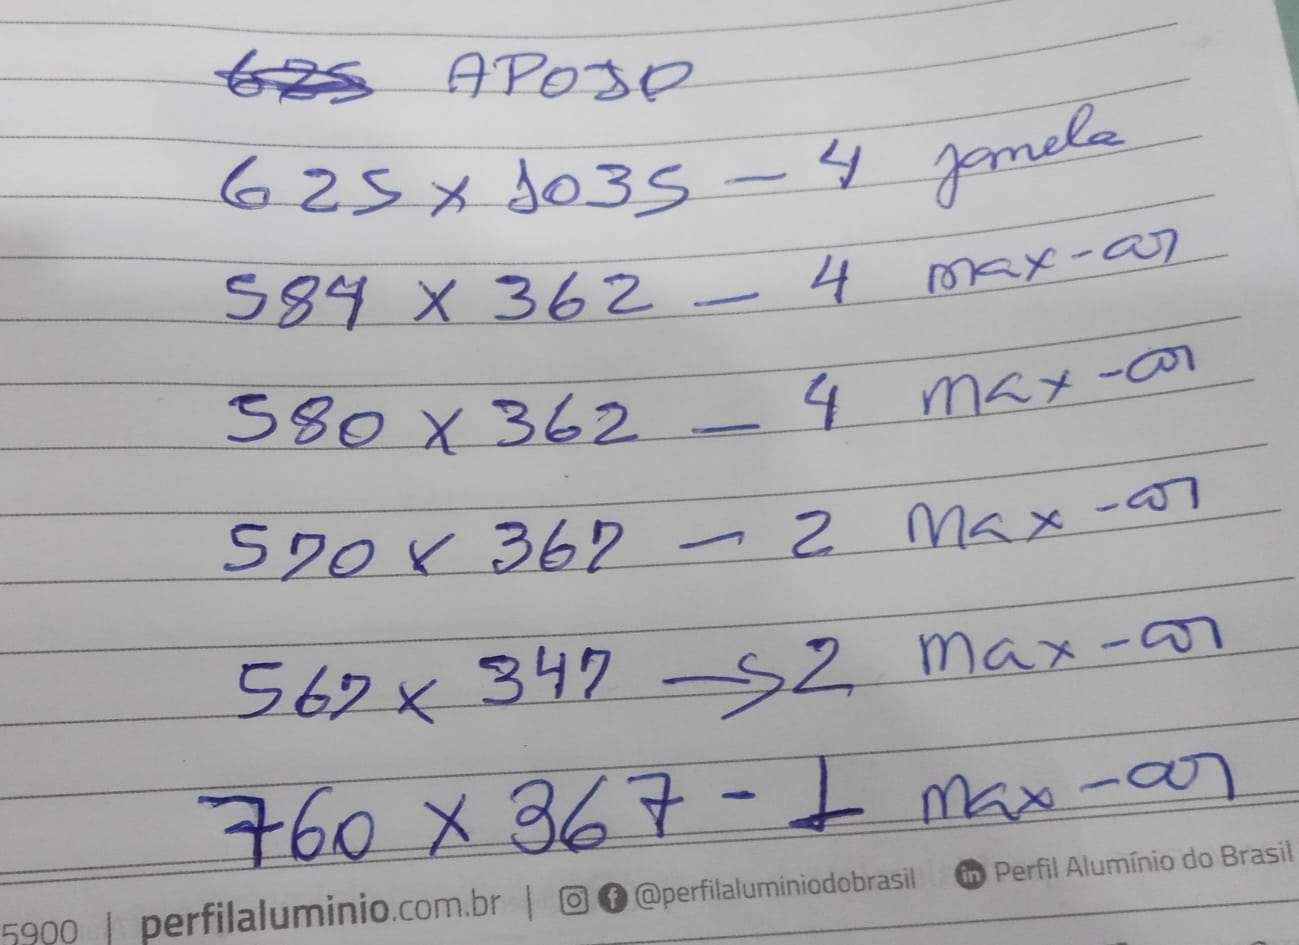 625 APOIO
625 x 1035 - 4 janela
584 x 362 - 4 max-ar
580 x 362 - 4 max-ar
570 x 367 - 2 max-ar
567 x 347 -> 2 max-ar
760 x 367 - 1 max-ar
5900 | perfilaluminio.com.br | @perfilaluminiodobrasil in Perfil Alumínio do Brasil